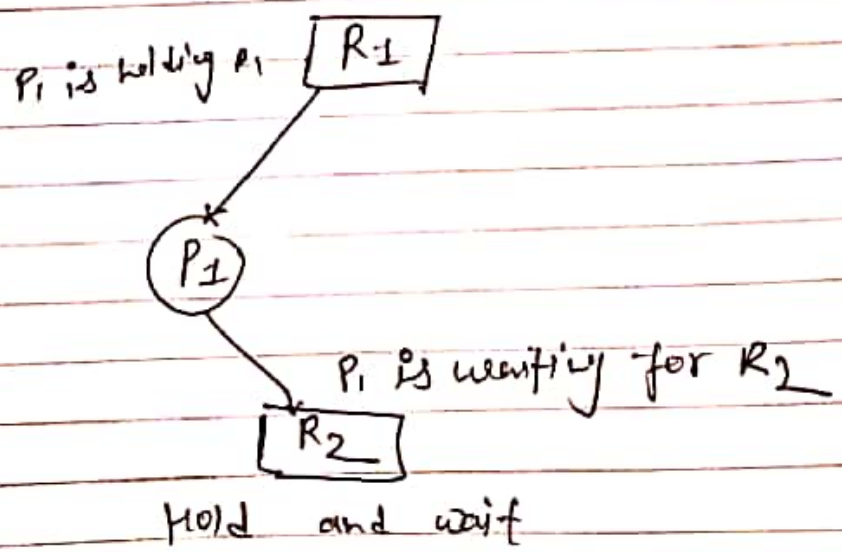 P1 is holding R1
R1
P1
P1 is waiting for R2
R2
Hold and wait